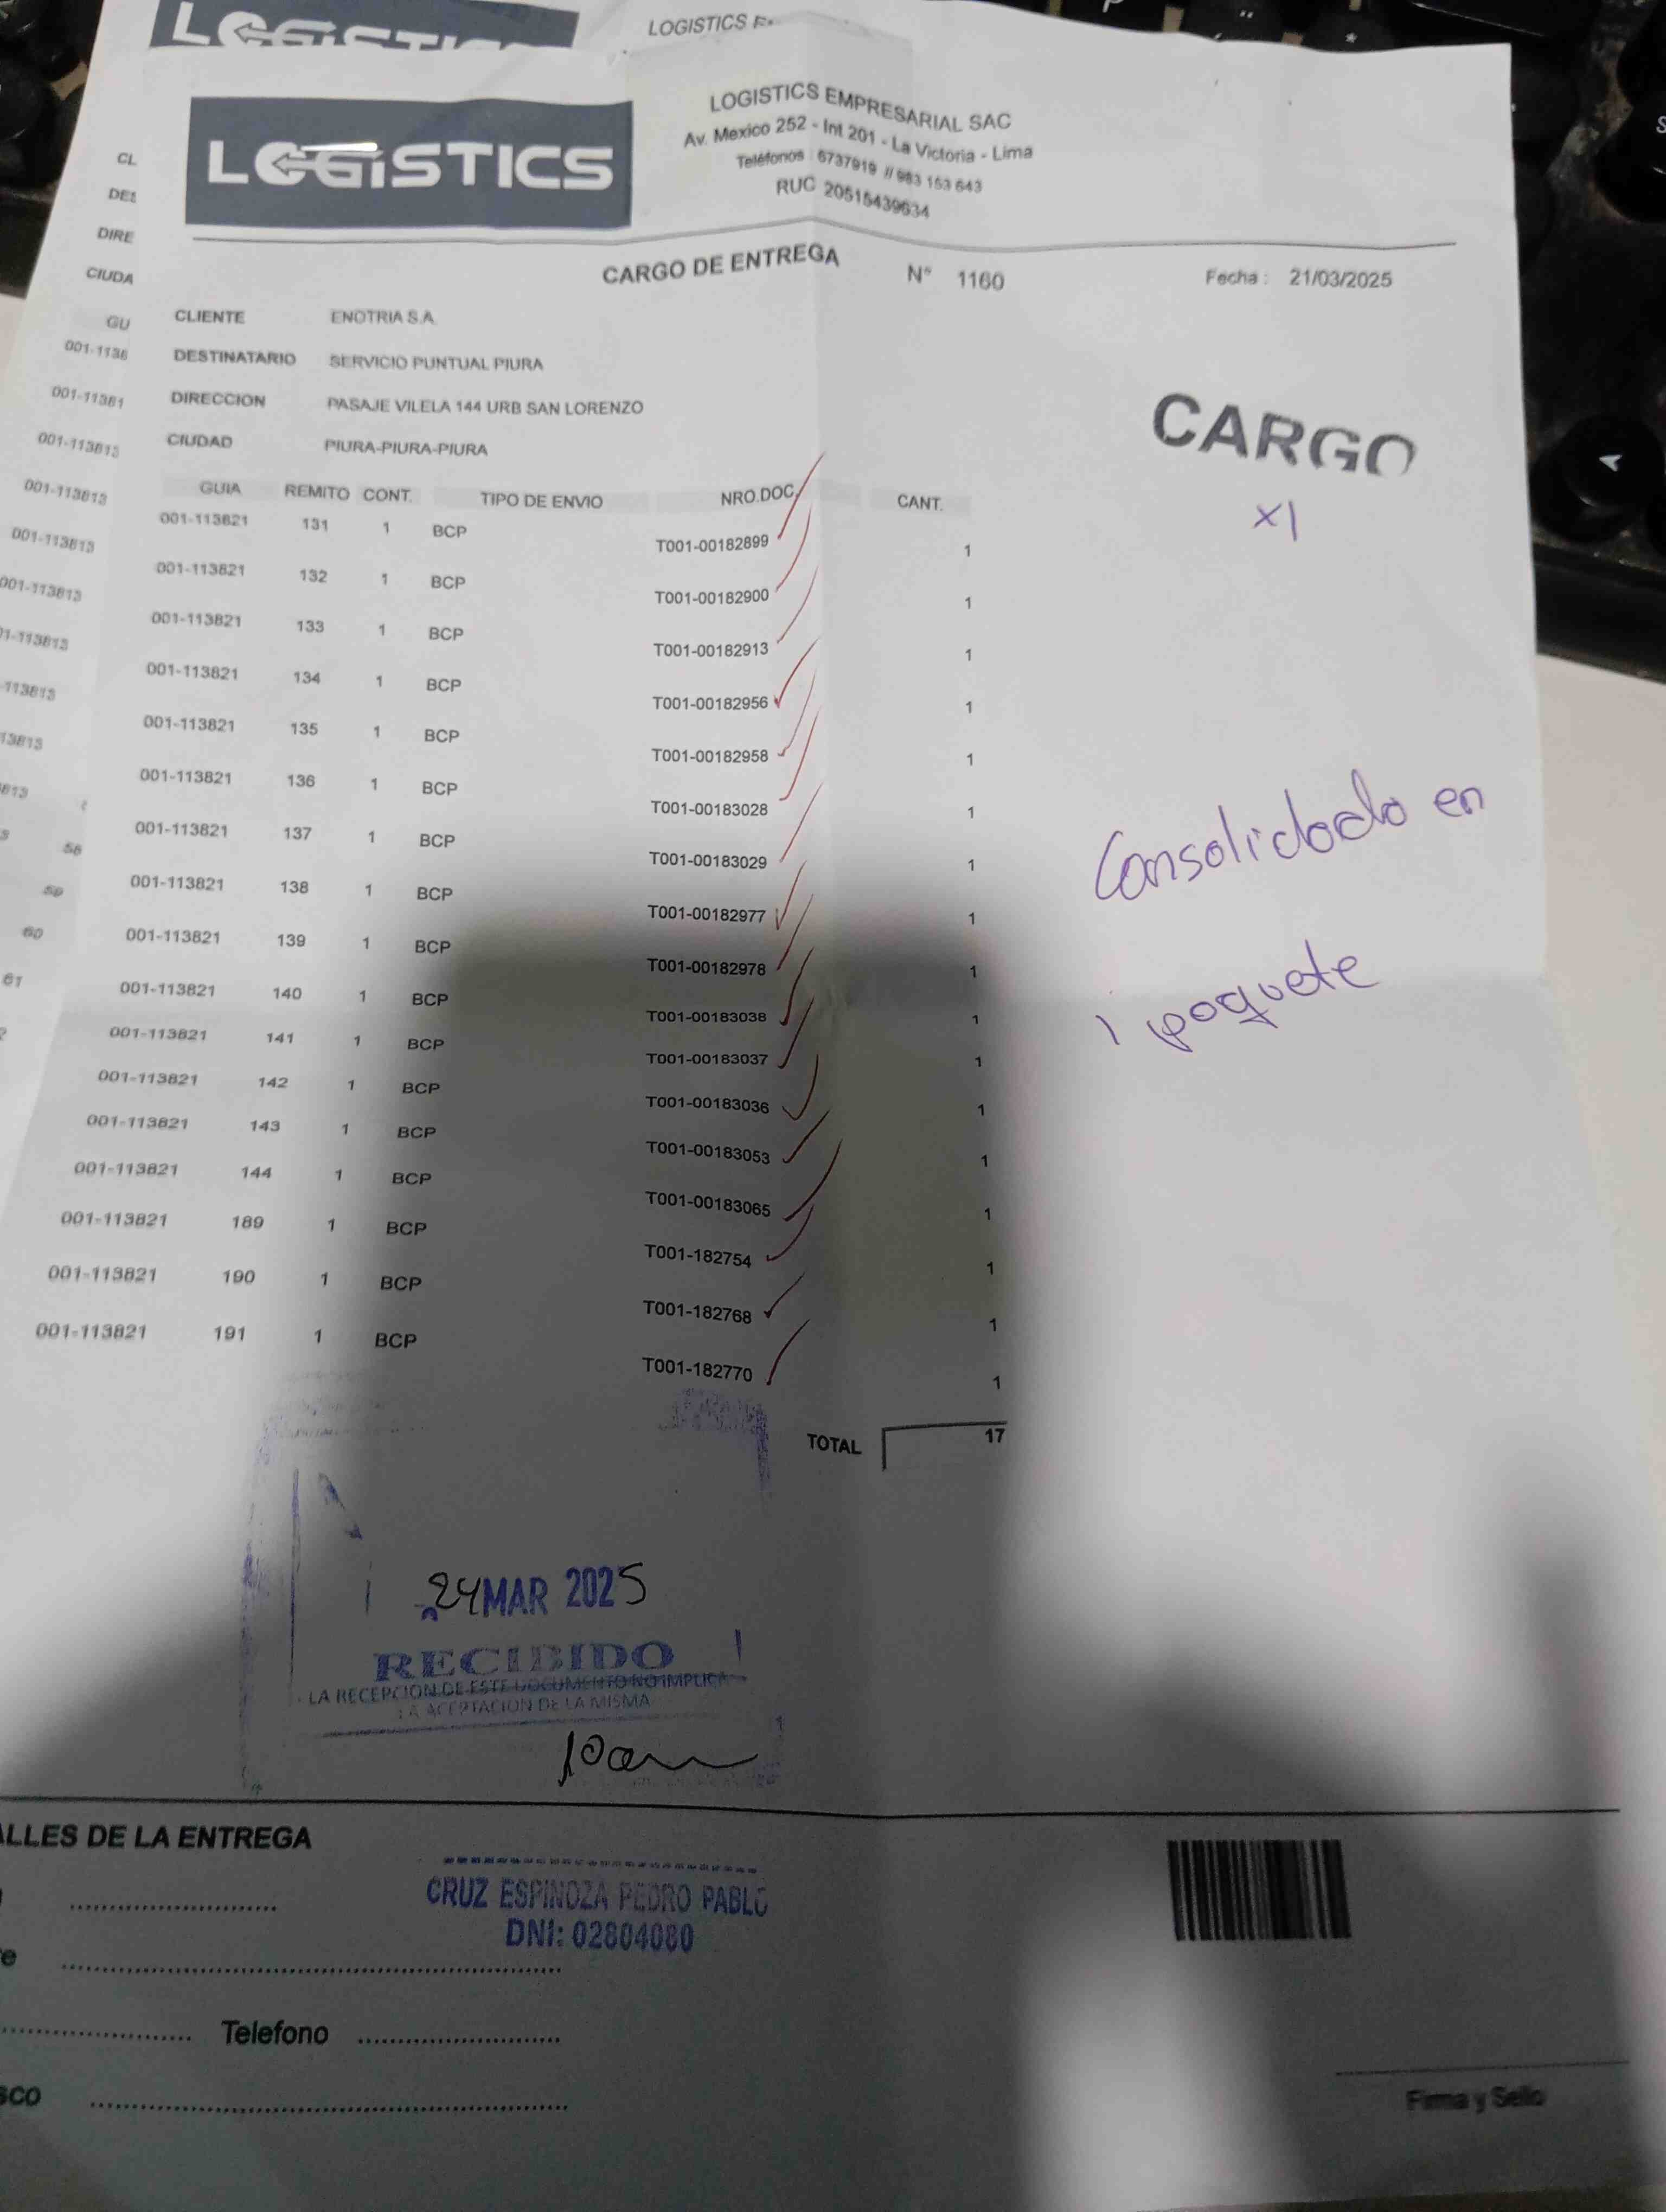 LOGISTICS
LOGISTICS
LOGISTICS
LOGISTICS EMPRESARIAL SAC
Av. Mexico 252 - Int 201 - La Victoria - Lima
Teléfonos : 6737919 // 983 153 643
RUC 20515439634
CARGO DE ENTREGA N° 1160 Fecha : 21/03/2025
CL
DES
DIRE
CIUDA
GU
001-1138
001-11381
001-113813
001-113813
001-113813
001-113813
1-113813
-113813
13813
813
58
59
60
61
CLIENTE ENOTRIA S.A.
DESTINATARIO SERVICIO PUNTUAL PIURA
DIRECCION PASAJE VILELA 144 URB SAN LORENZO
CIUDAD PIURA-PIURA-PIURA
CARGO
x1
GUIA REMITO CONT. TIPO DE ENVIO NRO.DOC. CANT.
001-113821 131 1 BCP T001-00182899 1
001-113821 132 1 BCP T001-00182900 1
001-113821 133 1 BCP T001-00182913 1
001-113821 134 1 BCP T001-00182956 1
001-113821 135 1 BCP T001-00182958 1
001-113821 136 1 BCP T001-00183028 1
001-113821 137 1 BCP T001-00183029 1
001-113821 138 1 BCP T001-00182977 1
001-113821 139 1 BCP T001-00182978 1
001-113821 140 1 BCP T001-00183038 1
001-113821 141 1 BCP T001-00183037 1
001-113821 142 1 BCP T001-00183036 1
001-113821 143 1 BCP T001-00183053 1
001-113821 144 1 BCP T001-00183065 1
001-113821 189 1 BCP T001-182754 1
001-113821 190 1 BCP T001-182768 1
001-113821 191 1 BCP T001-182770 1
TOTAL 17
Consolidado en
1 paquete
24 MAR 2025
RECIBIDO
LA RECEPCION DE ESTE DOCUMENTO NO IMPLICA
LA ACEPTACION DE LA MISMA
ALLES DE LA ENTREGA
CRUZ ESPINOZA PEDRO PABLO
DNI: 02804080
Telefono
sco
Firma y Sello